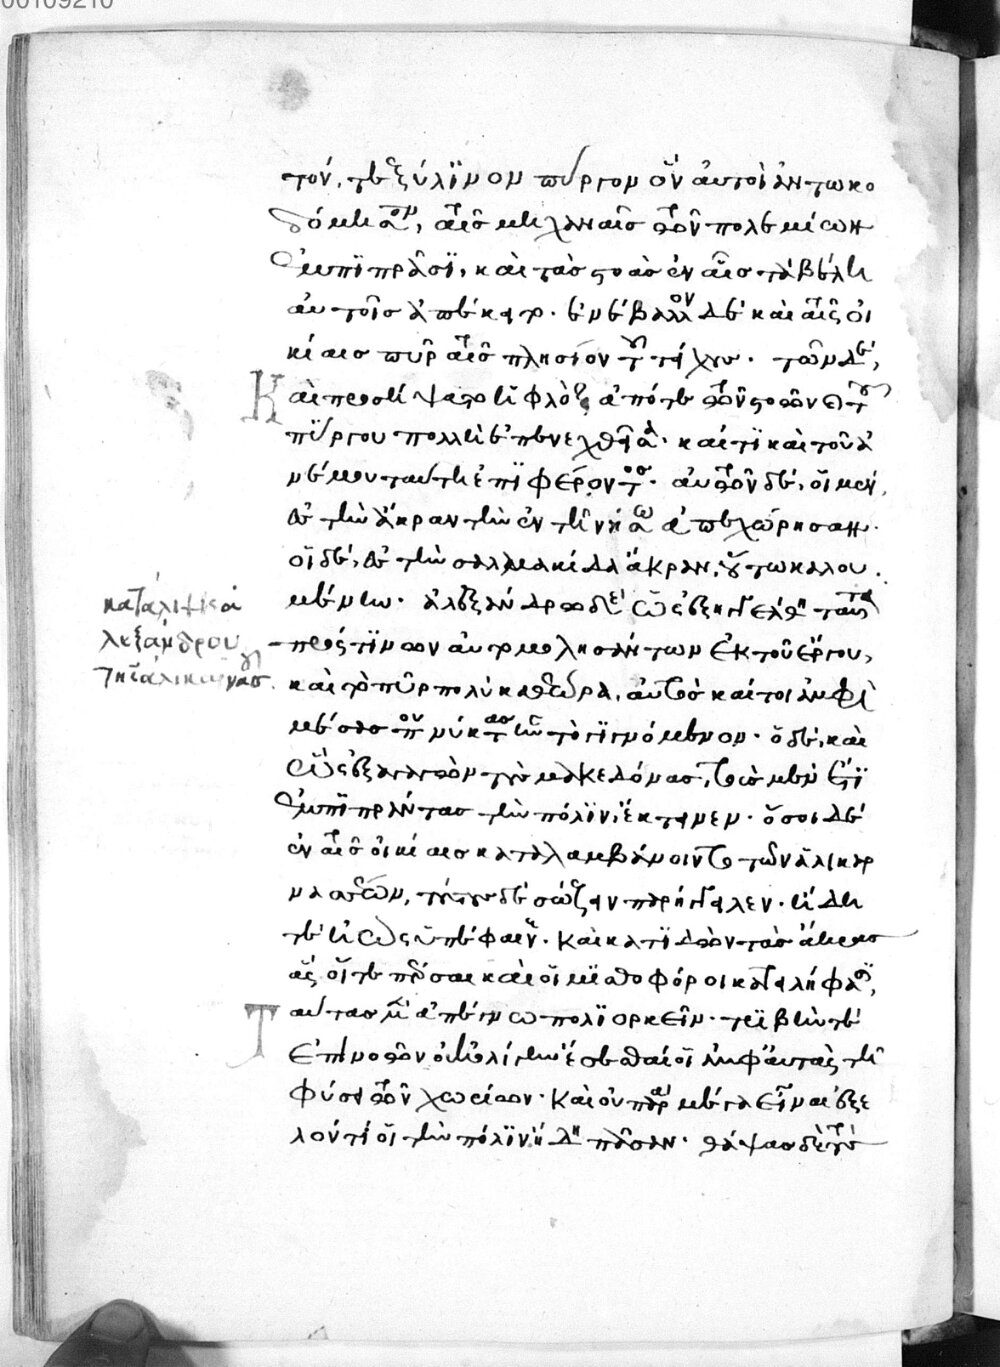 τόν τε ξύλϊνον πύργον ὃν αὐτοὶ ἀντωκο
δόμησαν, ταῖς μηχαναῖς τῶν πολεμίων
ἐμπϊπρᾶσϊ, καὶ τὰς στοὰς ἐν αἷς τὰ βέλη
αὐτοῖς ἀπέκειτο. ἐνέβαλλον δὲ καὶ ταῖς οἰ
κίαις πῦρ ταῖς πλησίον τοῦ τείχους. τῶν δὲ,
Καὶ προσήψατο ἡ φλὸξ ἀπό τε τῶν στοῶν καὶ τοῦ
πύργου πολλὴ ἐπενεχθεῖσα. καί τϊ καὶ τοῦ ἀ
νέμου ταύτη ἐπϊφέροντος. αὐτῶν δὲ, οἱ μὲν,
ἐς τὴν ἄκραν τὴν ἐν τῆ νήσω ἀπεχώρησαν.
οἱ δὲ, ἐς τὴν σαλμακίδα ἄκραν, οὕτω καλου
μένην. ἀλεξάνδρω δὲ ὡς ἐξηγγέλθη ταῦτα
πρός τϊνων αὐτομολησάντων ἐκ τοῦ ἔργου,
καὶ τὸ πῦρ πολὺ καθεώρα, αὐτὸς καίτοι ἀμφὶ
μέσας που νύκτας ἦν τὸ γϊγνόμενον. ὁ δὲ, καὶ
ὣς ἐξαγαγὼν τοὺς μακεδόνας, τοὺς μὲν ἔτϊ
ἐμπϊπράντας τὴν πόλϊν, ἔκτεινεν. ὅσοι δὲ
ἐν ταῖς οἰκίαις καταλαμβάνοιντο τῶν ἁλικαρ
νασσέων, τούτους δὲ σώζειν παρήγγειλεν. ἤδη
τε ἠὼς ὑπέφαινε. Καὶ κατϊδὼν τὰς ἄκρας
ἃς οἵ τε πέρσαι καὶ οἱ μϊσθοφόροι κατειλήφεσαν,
Ταύτας μὲν ἀπέγνω πολϊορκεῖν. τρϊβήν τε
ἐπινοῶν οὐκ ὀλίγην ἔσεσθαί οἱ ἀμφ' αὐτὰς τῆ
φύσει τῶν χωρίων. Καὶ οὐ παρὰ μέγα εἶναι ἐξε
λόντϊ οἱ τὴν πόλϊν ἤδη πᾶσαν. θάψας δὲ τοὺς
κατάληψις ἀ
λεξάνδρου
τῆς ἁλικαρνασ